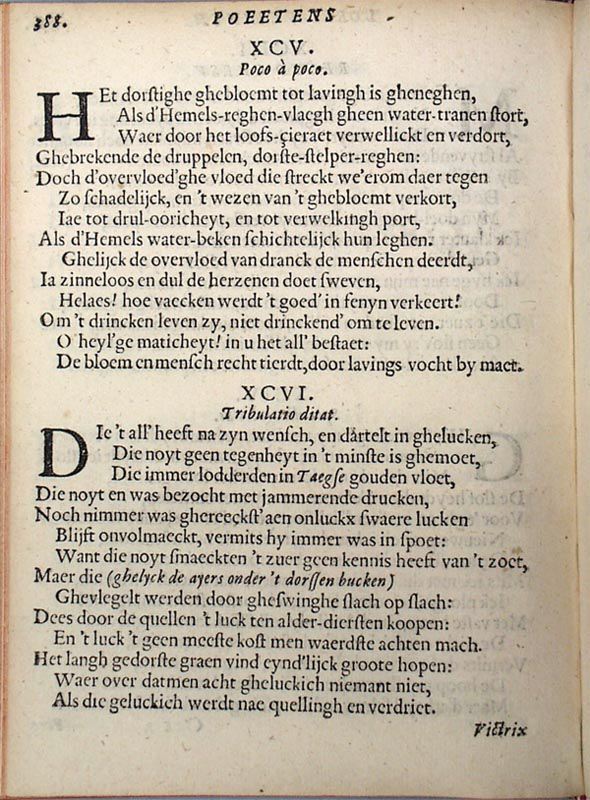 388.
POEETENS
XCV.
Poco à poco.
HEt dorſtighe ghebloemt tot lavingh is gheneghen,
Als d'Hemels-reghen-vlaegh gheen water-tranen ſtort,
Waer door het loofs-çieraet verwellickt en verdort,
Ghebrekende de druppelen, dorſte-ſtelper-reghen:
Doch d'overvloed'ghe vloed die ſtreckt we'erom daer tegen
Zo ſchadelijck, en 't wezen van 't ghebloemt verkort,
Iae tot drul-ooricheyt, en tot verwelkingh port,
Als d'Hemels water-beken ſchichtelijck hun leghen.
Ghelijck de overvloed van dranck de menſchen deerdt,
Ia zinneloos en dul de herzenen doet ſweven,
Helaes! hoe vaecken werdt 't goed' in fenyn verkeert!
Om 't drincken leven zy, niet drinckend' om te leven.
O heyl'ge maticheyt! in u het all' beſtaet:
De bloem en menſch recht tierdt, door lavings vocht by maet.
XCVI.
Tribulatio ditat.
DIe 't all' heeft na zyn wenſch, en dartelt in ghelucken,
Die noyt geen tegenheyt in 't minſte is ghemoet,
Die immer lodderden in Taegſe gouden vloet,
Die noyt en was bezocht met jammerende drucken,
Noch nimmer was ghereeckſt' aen onluckx ſwaere lucken
Blijft onvolmaeckt, vermits hy immer was in ſpoet:
Want die noyt ſmaeckten 't zuer geen kennis heeft van 't zoet,
Maer die (ghelyck de ayers onder 't dorſſen bucken)
Ghevlegelt werden door gheſwinghe ſlach op ſlach:
Dees door de quellen 't luck ten alder-dierſten koopen:
En 't luck 't geen meeſte koſt men waerdſte achten mach.
Het langh gedorſte graen vind eynd'lijck groote hopen:
Waer over datmen acht gheluckich niemant niet,
Als die geluckich werdt nae quellingh en verdriet.
Victrix